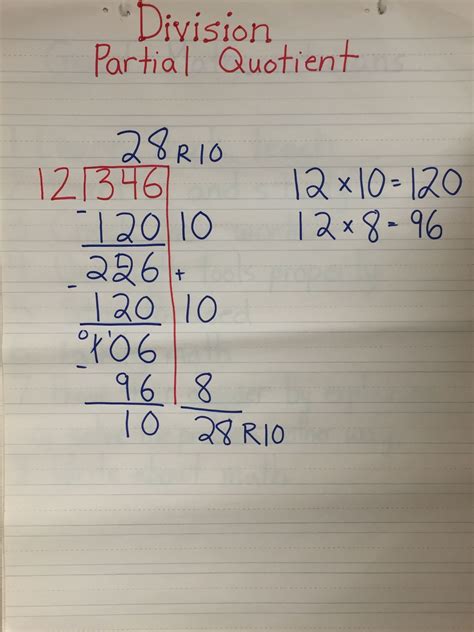 Division
Partial Quotient
28 R10
12 346
12 × 10 = 120
- 120 10
12 × 8 = 96
226 +
- 120 10
106
- 96 8
10 28 R10